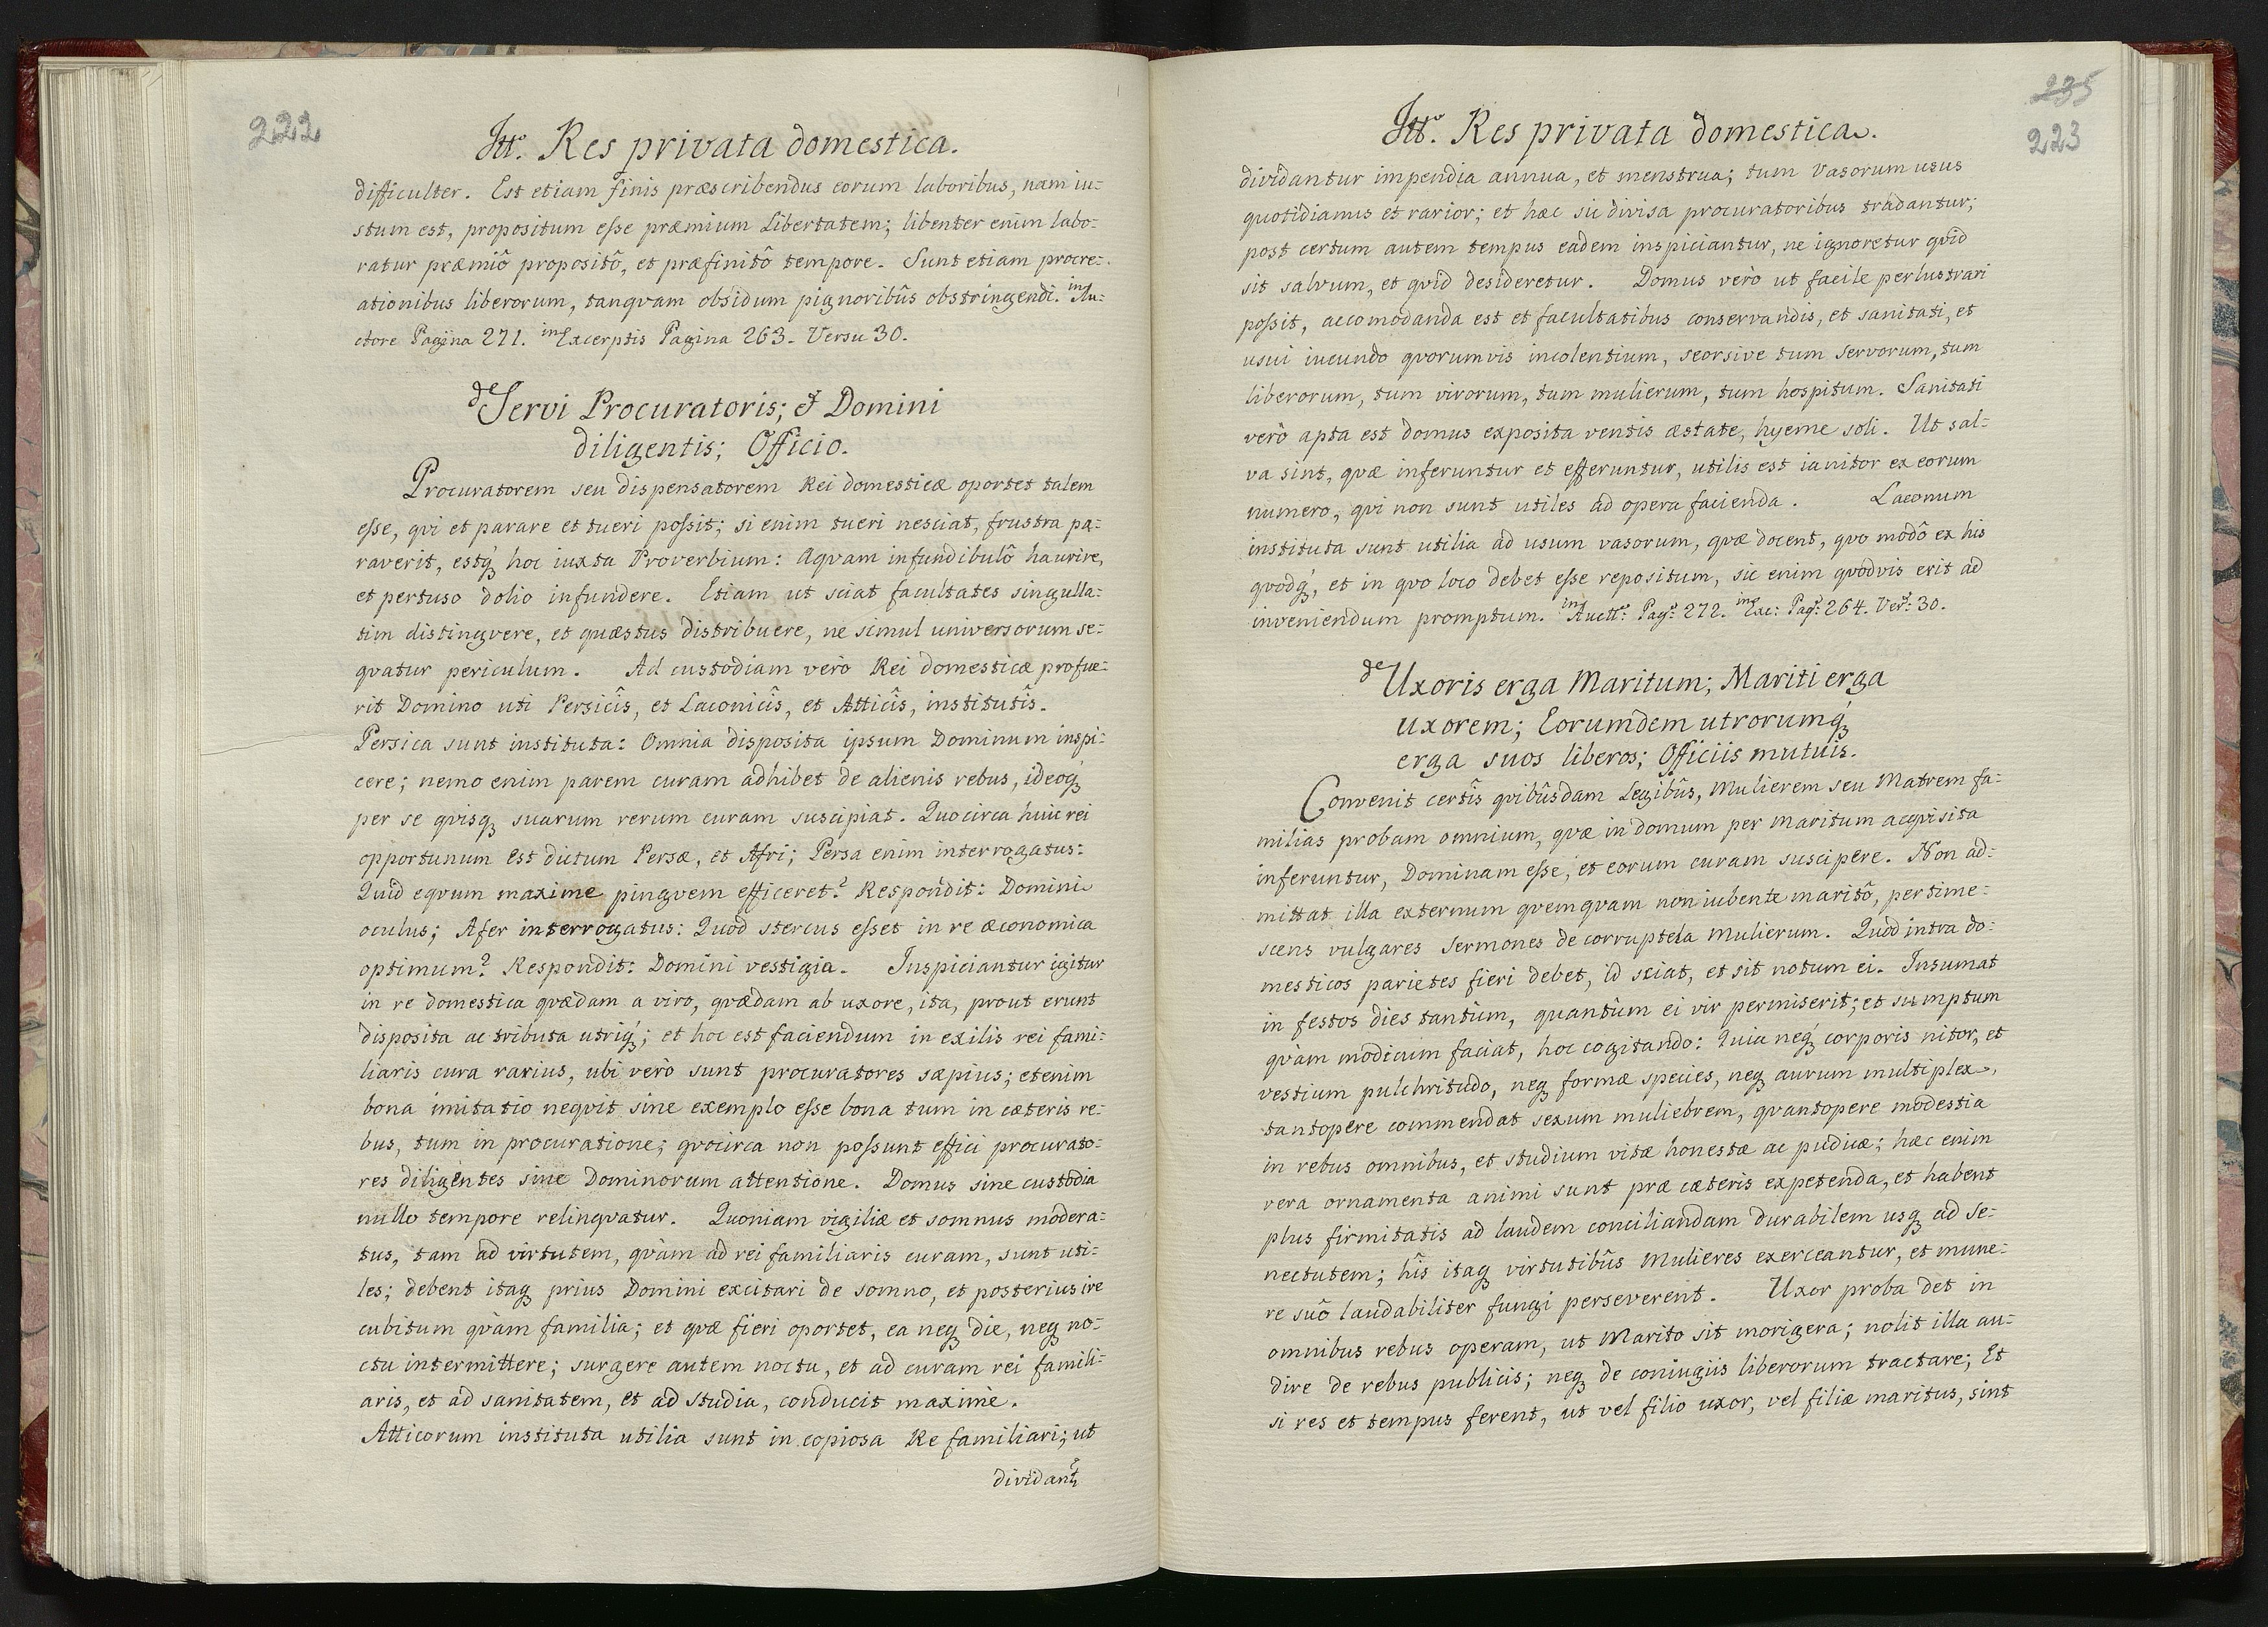 222
Itt: Res privata domestica.
difficulter. Est etiam finis præscribendus eorum laboribus, nam iu=
stum est, propositum esse præmium Libertatem; libenter enim labo=
ratur præmiô propositô, et præfinitô tempore. Sunt etiam procre=
ationibus liberorum, tanqvam obsidum pignoribûs obstringendi. in Au=
ctore Pagina 271. in Excerptis Pagina 263. Versu 30.
de Servi Procuratoris; & Domini
diligentis; Officio.
Procuratorem seu dispensatorem Rei domesticæ oportet talem
esse, qvi et parare et tueri possit; si enim tueri nesciat, frustra pa=
raverit, estq́ hoc iuxta Proverbium: Aqvam infundibulô haurire,
et pertuso dolio infundere. Etiam ut sciat facultates singulla=
tim distingvere, et quæstus distribuere, ne simul universorum se=
qvatur periculum. Ad custodiam verò Rei domesticæ profue=
rit Domino uti Persicîs, et Laconicîs, et Atticîs, institutîs.
Persica sunt instituta: Omnia disposita ipsum Dominum inspi=
cere; nemo enim parem curam adhibet de alienis rebus, ideoq́
per se qvisq suarum rerum curam suscipiat. Quocirca huic rei
opportunum est dictum Persæ, et Afri; Persa enim interrogatus:
Quid eqvum maxime pingvem efficeret? Respondit: Domini
oculus; Afer interrogatus: Quod stercus esset in re œconomica
optimum? Respondit: Domini vestigia. Inspiciantur igitur
in re domestica qvædam a viro, qvædam ab uxore, ita, prout erunt
disposita ac tributa utriq́; et hoc est faciendum in exilis rei fami=
liaris cura rarius, ubi verò sunt procuratores sæpius; etenim
bona imitatio neqvit sine exemplo esse bona tum in cæteris re=
bus, tum in procuratione; qvocirca non possunt effici procurato=
res diligentes sine Dominorum attentione. Domus sine custodia
nullo tempore relinqvatur. Quoniam vigiliæ et somnus modera=
tus, tam ad virtutem, qvàm ad rei familiaris curam, sunt uti=
les; debent itaq prius Domini excitari de somno, et posterius ire
cubitum qvàm familia; et qvæ fieri oportet, ea neq die, neq no=
ctu intermittere; surgere autem noctu, et ad curam rei famili=
aris, et ad sanitatem, et ad studia, conducit maximè.
Atticorum instituta utilia sunt in copiosa Re familiari; ut
dividant
235
223
Itt: Res privata domestica.
dividantur impendia annua, et menstrua; tum Vasorum usus
quotidianus et rarior; et hæc sic divisa procuratoribus tradantur;
post certum autem tempus eadem inspiciantur, ne ignoretur qvid
sit salvum, et qvid desideretur. Domus verò ut facile perlustrari
possit, accomodanda est et facultatibus conservandis, et sanitati, et
usui iucundo qvorumvis incolentium, seorsive tum servorum, tum
liberorum, tum virorum, tum mulierum, tum hospitum. Sanitati
verò apta est domus exposita ventis æstate, hyeme soli. Ut sal=
va sint, qvæ inferuntur et efferuntur, utilis est ianitor ex eorum
numero, qvi non sunt utiles ad opera facienda. Laconum
instituta sunt utilia ad usum vasorum, qvæ docent, qvo modô ex his
qvodq́, et in qvo loco debet esse repositum, sic enim qvodvis erit ad
inveniendum promptum. in Auctre: Pagâ: 272. in Exc: Pagâ: 264. Versû: 30.
de Uxoris erga Maritum; Mariti erga
uxorem; Eorumdem utrorumq́
erga suos liberos; Officiis mutuis.
Convenit certîs qvibûsdam Legibûs, Mulierem seu Matrem fa=
milias probam omnium, qvæ in domum per maritum acqvisita
inferuntur, Dominam esse, et eorum curam suscipere. Non ad=
mittat illa externum qvemqvam non iubente maritô, pertime=
scens vulgares sermones de corruptela Mulierum. Quod intra do=
mesticos parietes fieri debet, id sciat, et sit notum ei. Insumat
in festos dies tantùm, quantùm ei vir permiserit; et sumptum
qvàm modicum faciat, hoc cogitando: Quia neq́ corporis nitor, et
vestium pulchritudo, neq formæ species, neq aurum multiplex,
tantopere commendat sexum muliebrem, qvantopere modestia
in rebus omnibus, et studium vitæ honestæ ac pudicæ; hæc enim
vera ornamenta animi sunt præ cæteris expetenda, et habent
plus firmitatis ad laudem conciliandam durabilem usq ad se=
nectutem; hîs itaq virtutibûs Mulieres exerceantur, et mune=
re suô laudabiliter fungi perseverent. Uxor proba det in
omnibus rebus operam, ut Marito sit morigera; nolit illa au=
dire de rebus publicis; neq de coniugiis liberorum tractare; Et
si res et tempus ferent, ut vel filio uxor, vel filiæ maritus, sint